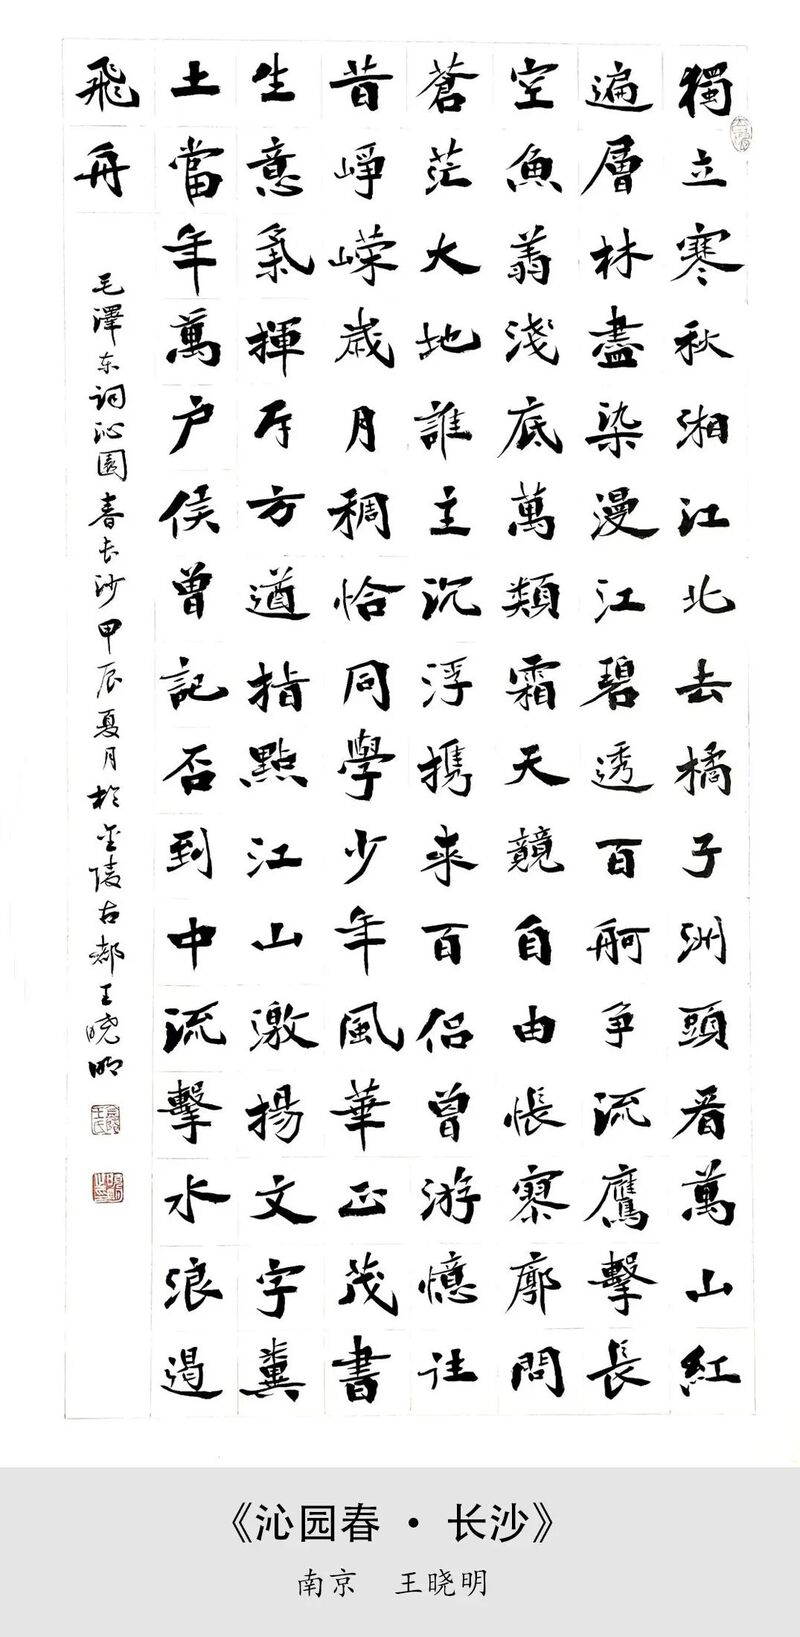 獨立寒秋湘江北去橘子洲頭看萬山紅
遍層林盡染漫江碧透百舸争流鷹擊長
空魚翔淺底萬類霜天競自由悵寥廓問
蒼茫大地誰主沉浮携來百侣曾游憶往
昔崢嶸歲月稠恰同學少年風華正茂書
生意氣揮斥方遒指點江山激揚文字糞
土當年萬户侯曾記否到中流擊水浪遏
飛舟
毛澤东词沁園春长沙甲辰夏月於金陵古都王晓明
《沁园春·长沙》
南京 王晓明